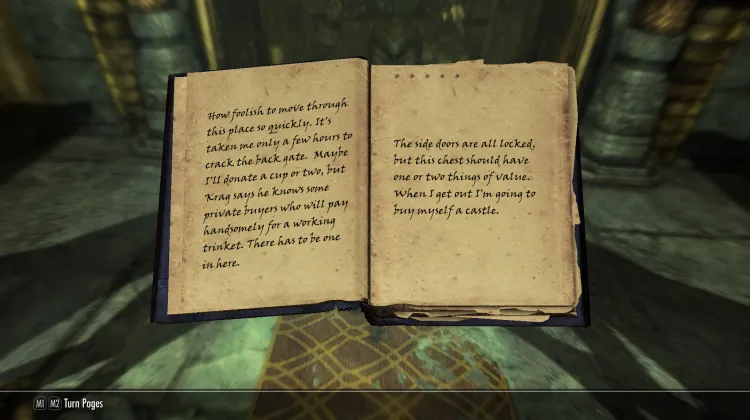 How foolish to move through
this place so quickly. It's
taken me only a few hours to
crack the back gate. Maybe
I'll donate a cup or two, but
Krag says he knows some
private buyers who will pay
handsomely for a working
trinket. There has to be one
in here.
* * * * *
The side doors are all locked,
but this chest should have
one or two things of value.
When I get out I'm going to
buy myself a castle.
M1 M2 Turn Pages